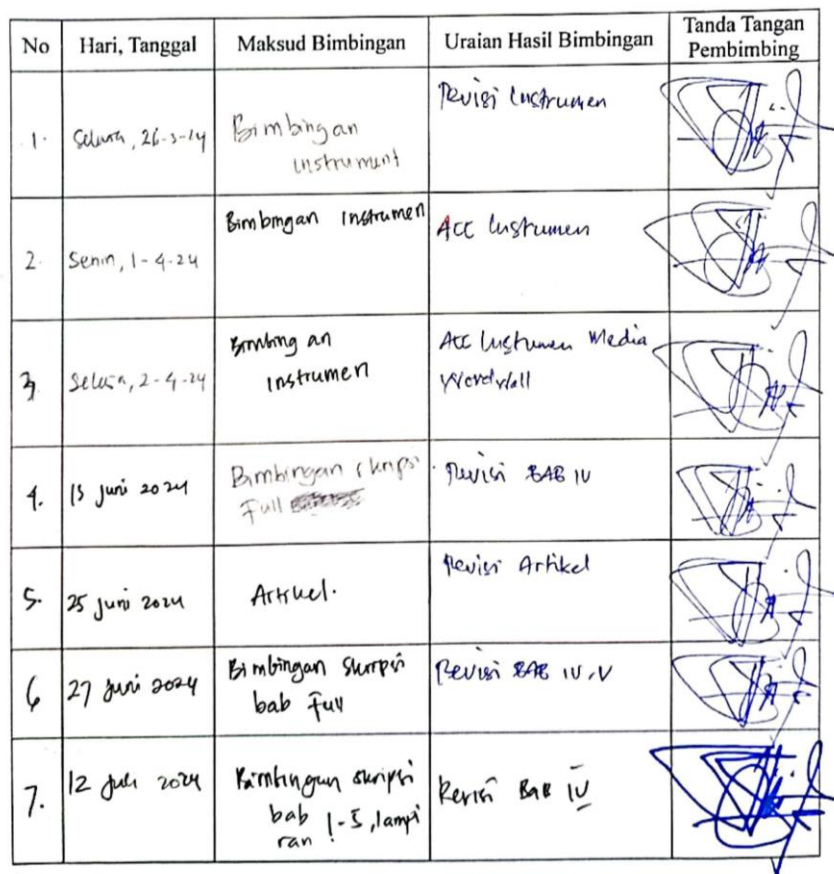 No Hari, Tanggal Maksud Bimbingan Uraian Hasil Bimbingan Tanda Tangan
Pembimbing
1. Selasa, 26-3-24 Bimbingan Revisi Instrumen
instrument
2. Senin, 1-4-24 Bimbingan Instrumen Acc Instrumen
3. Selasa, 2-4-24 Bimbingan Acc Instrumen Media
instrumen Wordwall
4. 13 Juni 2024 Bimbingan skripsi Revisi BAB IV
Full
5. 25 Juni 2024 Artikel. Revisi Artikel
6 27 Juni 2024 Bimbingan Skripsi Revisi BAB IV, V
bab Full
7. 12 Juli 2024 Bimbingan skripsi Revisi Bab IV
bab 1-5, lampi
ran